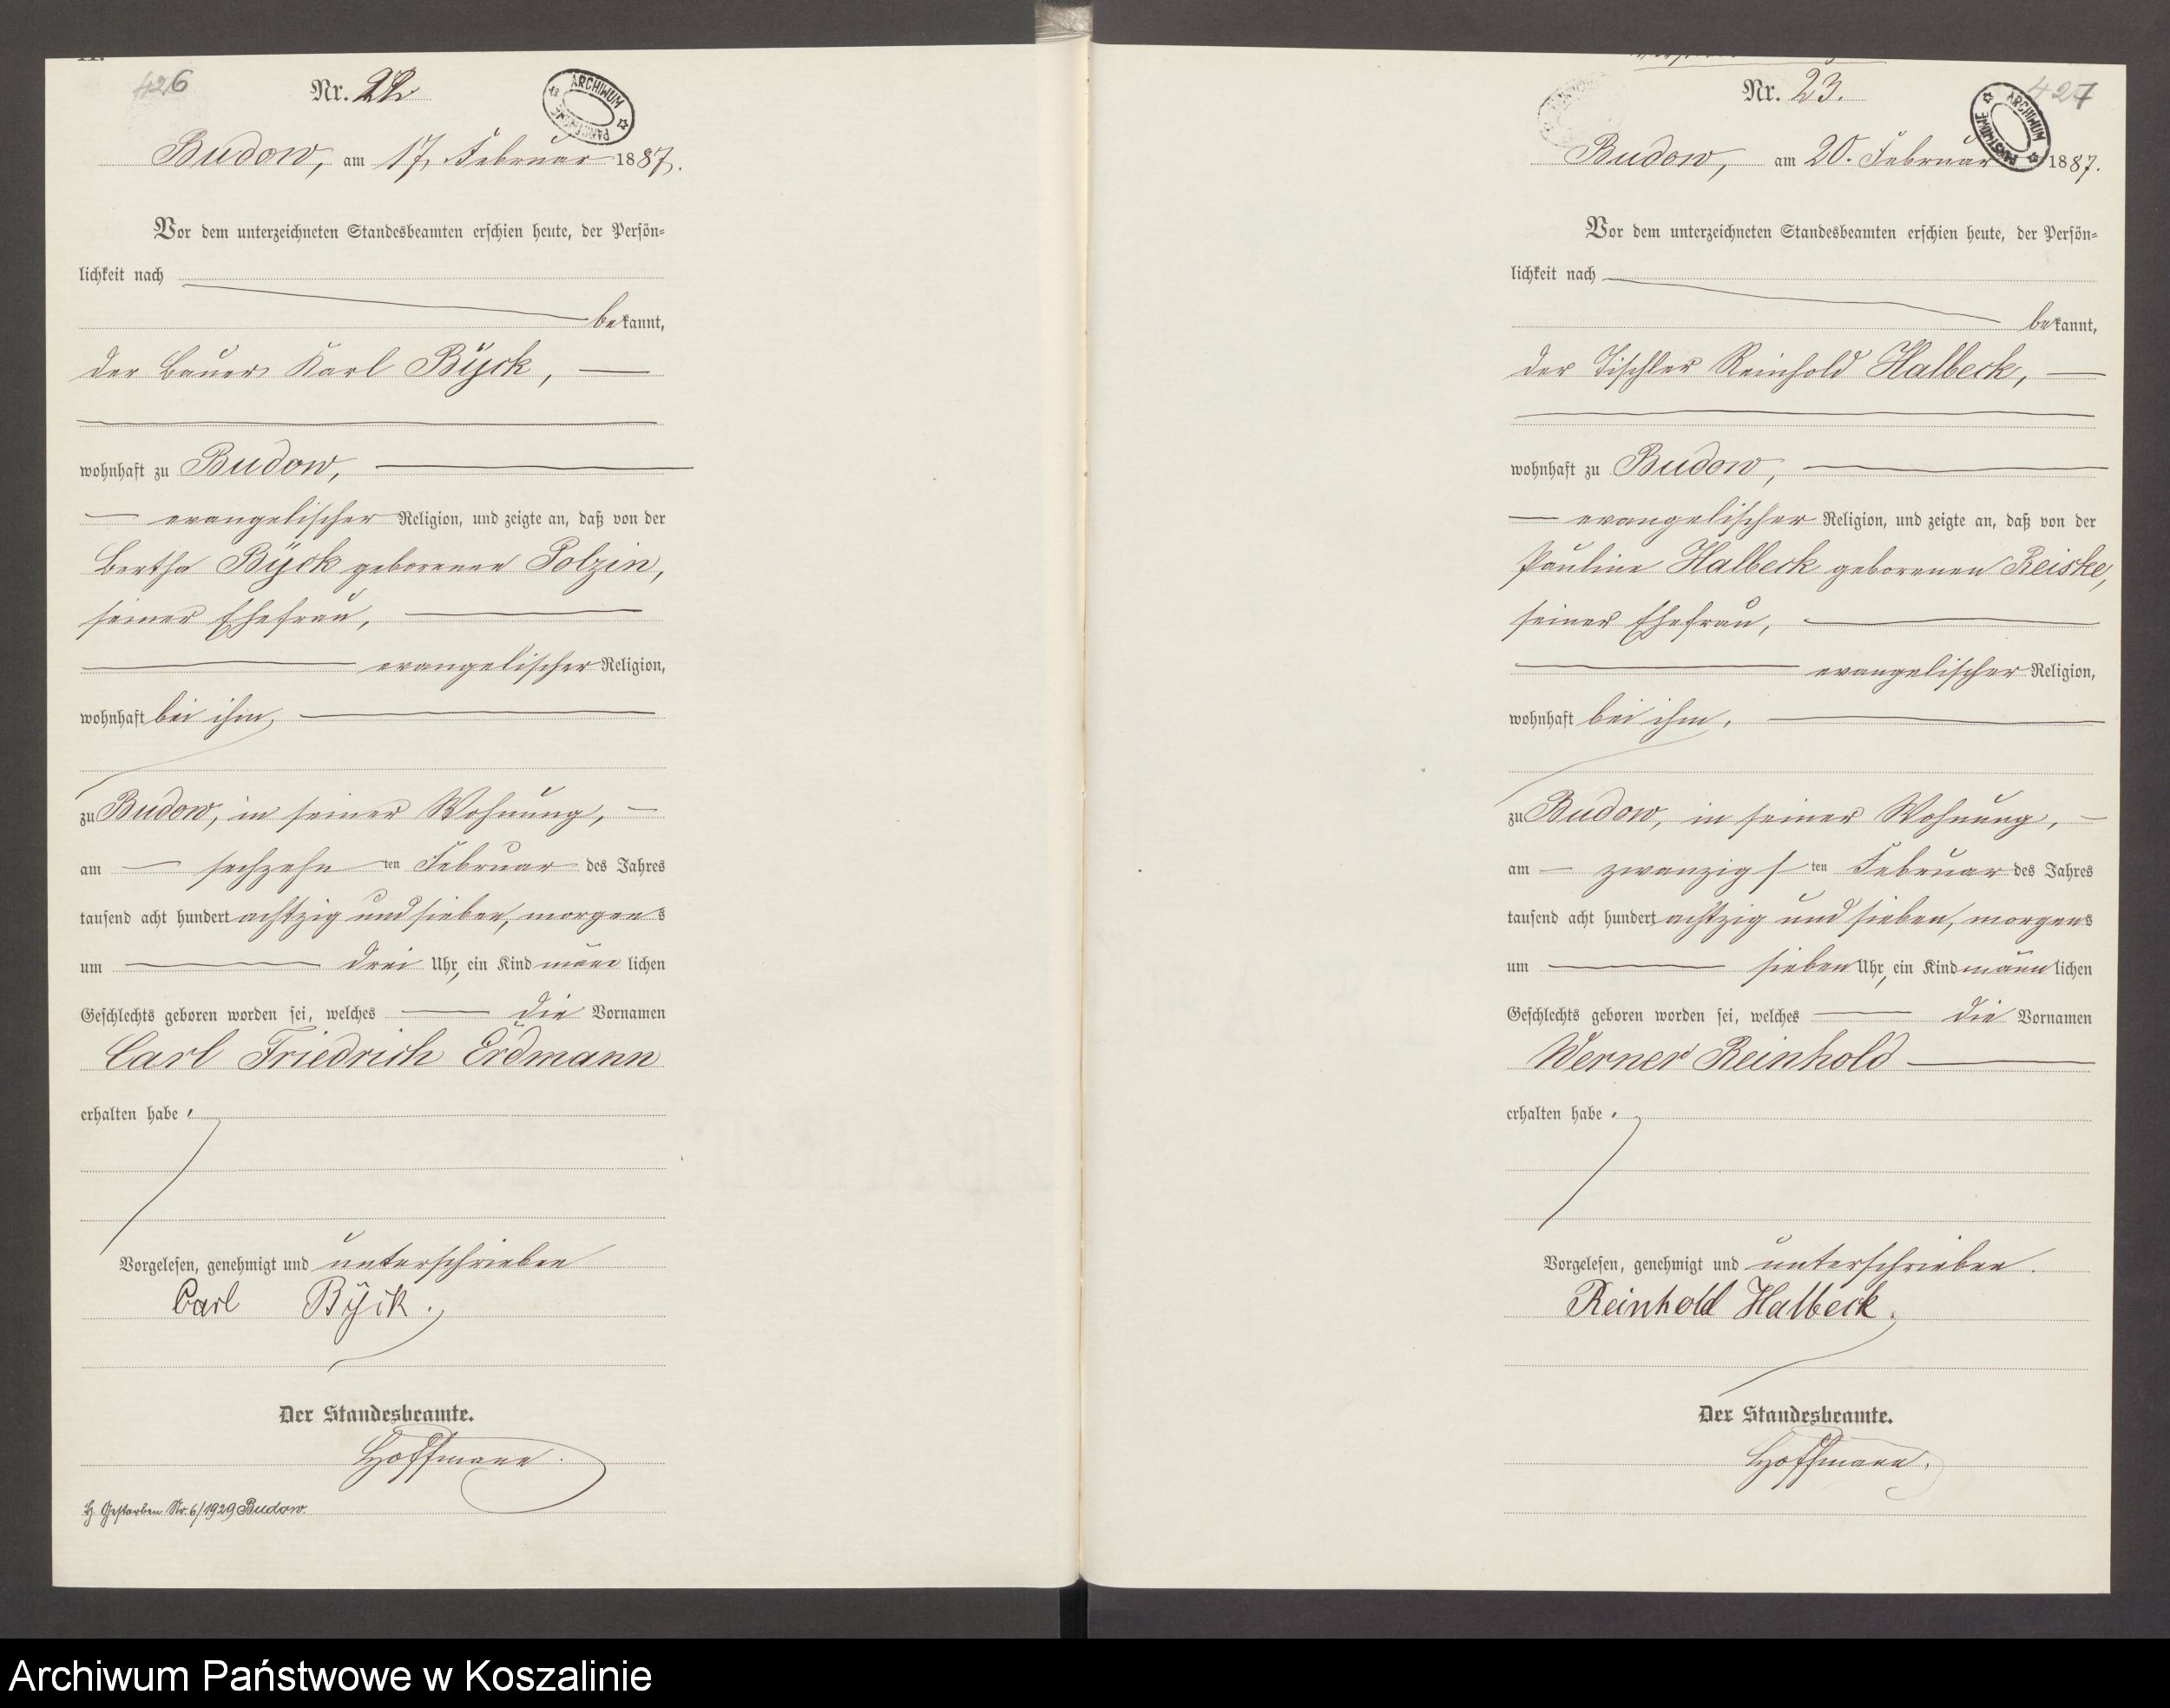 426
Nr. 22
ARCHIWUM PAŃSTWOWE
Budow, am 17. Februar 1887.
Vor dem unterzeichneten Standesbeamten erschien heute, der Persön-
lichkeit nach
bekannt,
der Bauer Karl Byck,
wohnhaft zu Budow,
evangelischer Religion, und zeigte an, daß von der
Bertha Byck geborenen Polzin,
seiner Ehefrau,
evangelischer Religion,
wohnhaft bei ihm,
zu Budow, in seiner Wohnung,
am sechzehn ten Februar des Jahres
tausend acht hundert achtzig und sieben, morgens
um drei Uhr, ein Kind männlichen
Geschlechts geboren worden sei, welches die Vornamen
Carl Friedrich Erdmann
erhalten habe.
Vorgelesen, genehmigt und unterschrieben
Carl Byck.
Der Standesbeamte.
Hoffmann.
H Gestorben Nr. 6/1929 Budow.
Nr. 23.
427
ARCHIWUM PAŃSTWOWE
Budow, am 20. Februar 1887.
Vor dem unterzeichneten Standesbeamten erschien heute, der Persön-
lichkeit nach
bekannt,
der Tischler Reinhold Halbeck,
wohnhaft zu Budow,
evangelischer Religion, und zeigte an, daß von der
Pauline Halbeck geborenen Reiske,
seiner Ehefrau,
evangelischer Religion,
wohnhaft bei ihm,
zu Budow, in seiner Wohnung,
am zwanzigsten Februar des Jahres
tausend acht hundert achtzig und sieben, morgens
um sieben Uhr, ein Kind männlichen
Geschlechts geboren worden sei, welches die Vornamen
Werner Reinhold
erhalten habe.
Vorgelesen, genehmigt und unterschrieben.
Reinhold Halbeck.
Der Standesbeamte.
Hoffmann.
Archiwum Państwowe w Koszalinie